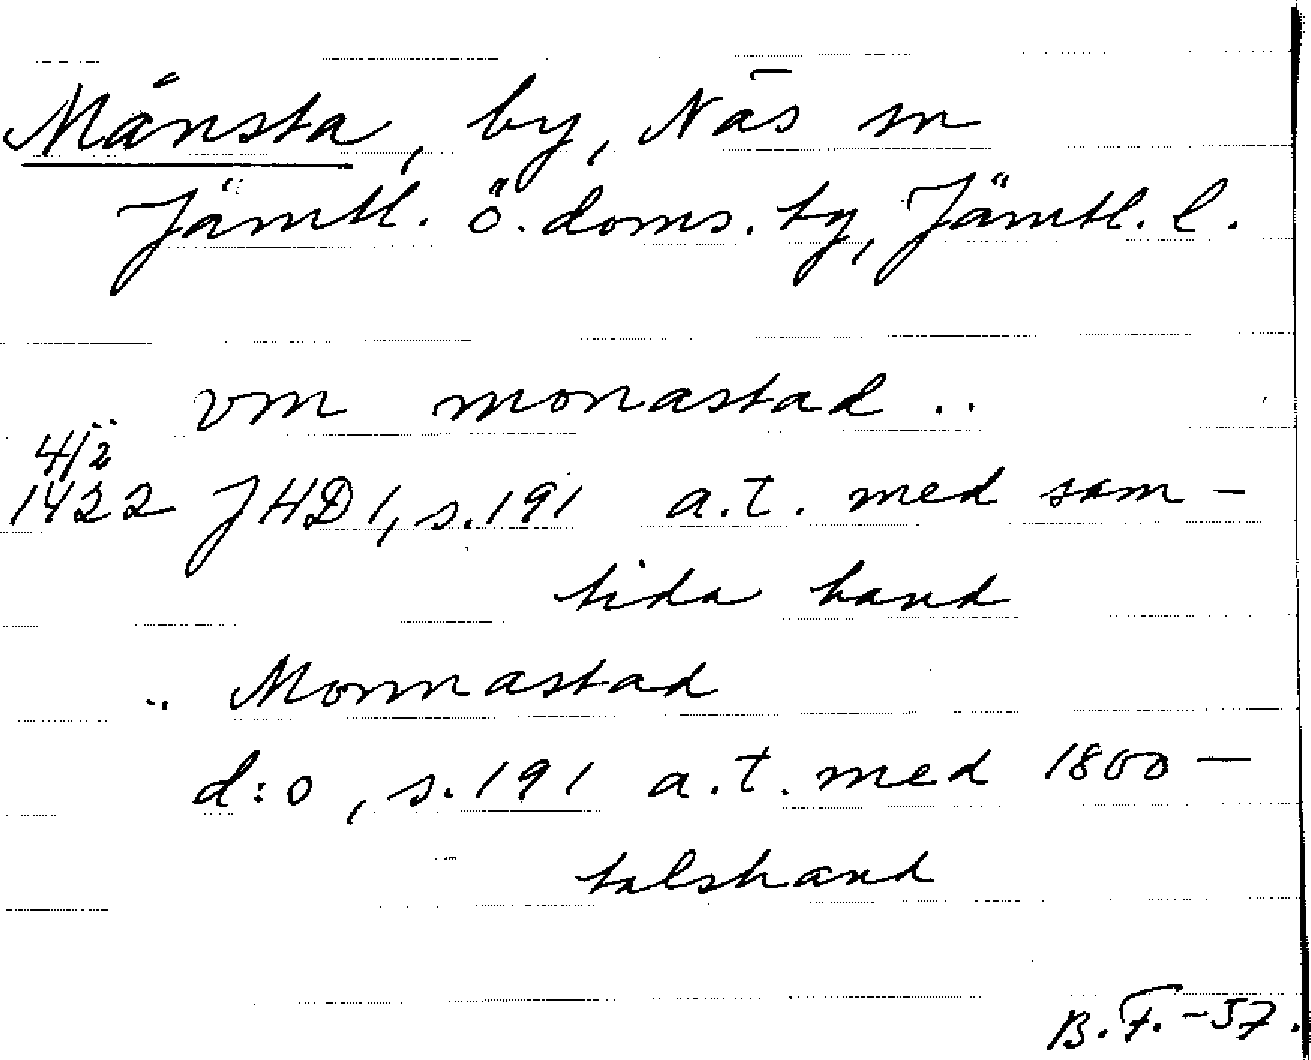 Månsta, by, Näs sn
Jämtl. ö. doms. tg, Jämtl. l.
vm monastad ..
4/2
1422 JHD 1, s. 191 a.t. med sam-
tida hand
.. Monnastad
d:o, s. 191 a.t. med 1800-
talshand
B.F. -57.